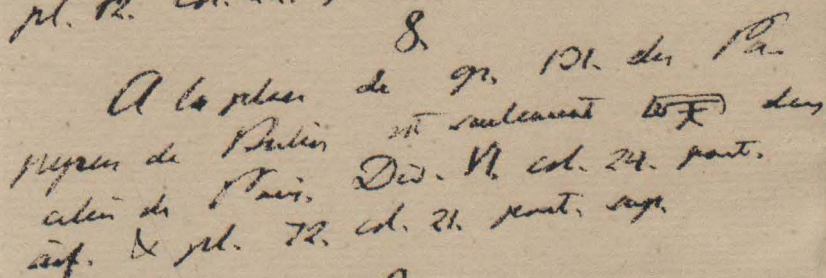 pl. 72. col.
8.
A la place de gr. 121. du Pa-
pyrus de Berlin est seulement dans
celui de Paris. Div. VI. col. 24. part.
inf. & pl. 72. col. 21. part. sup.